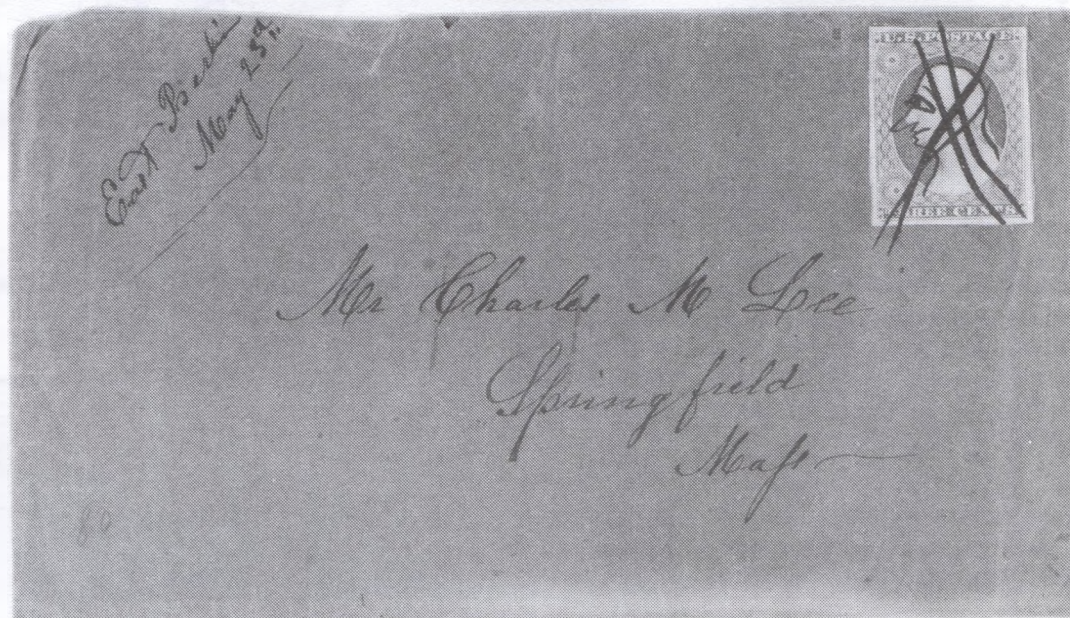 East
May 23d
U.S. POSTAGE.
THREE CENTS.
Mr Charles M Lee
Springfield
Maſs
80